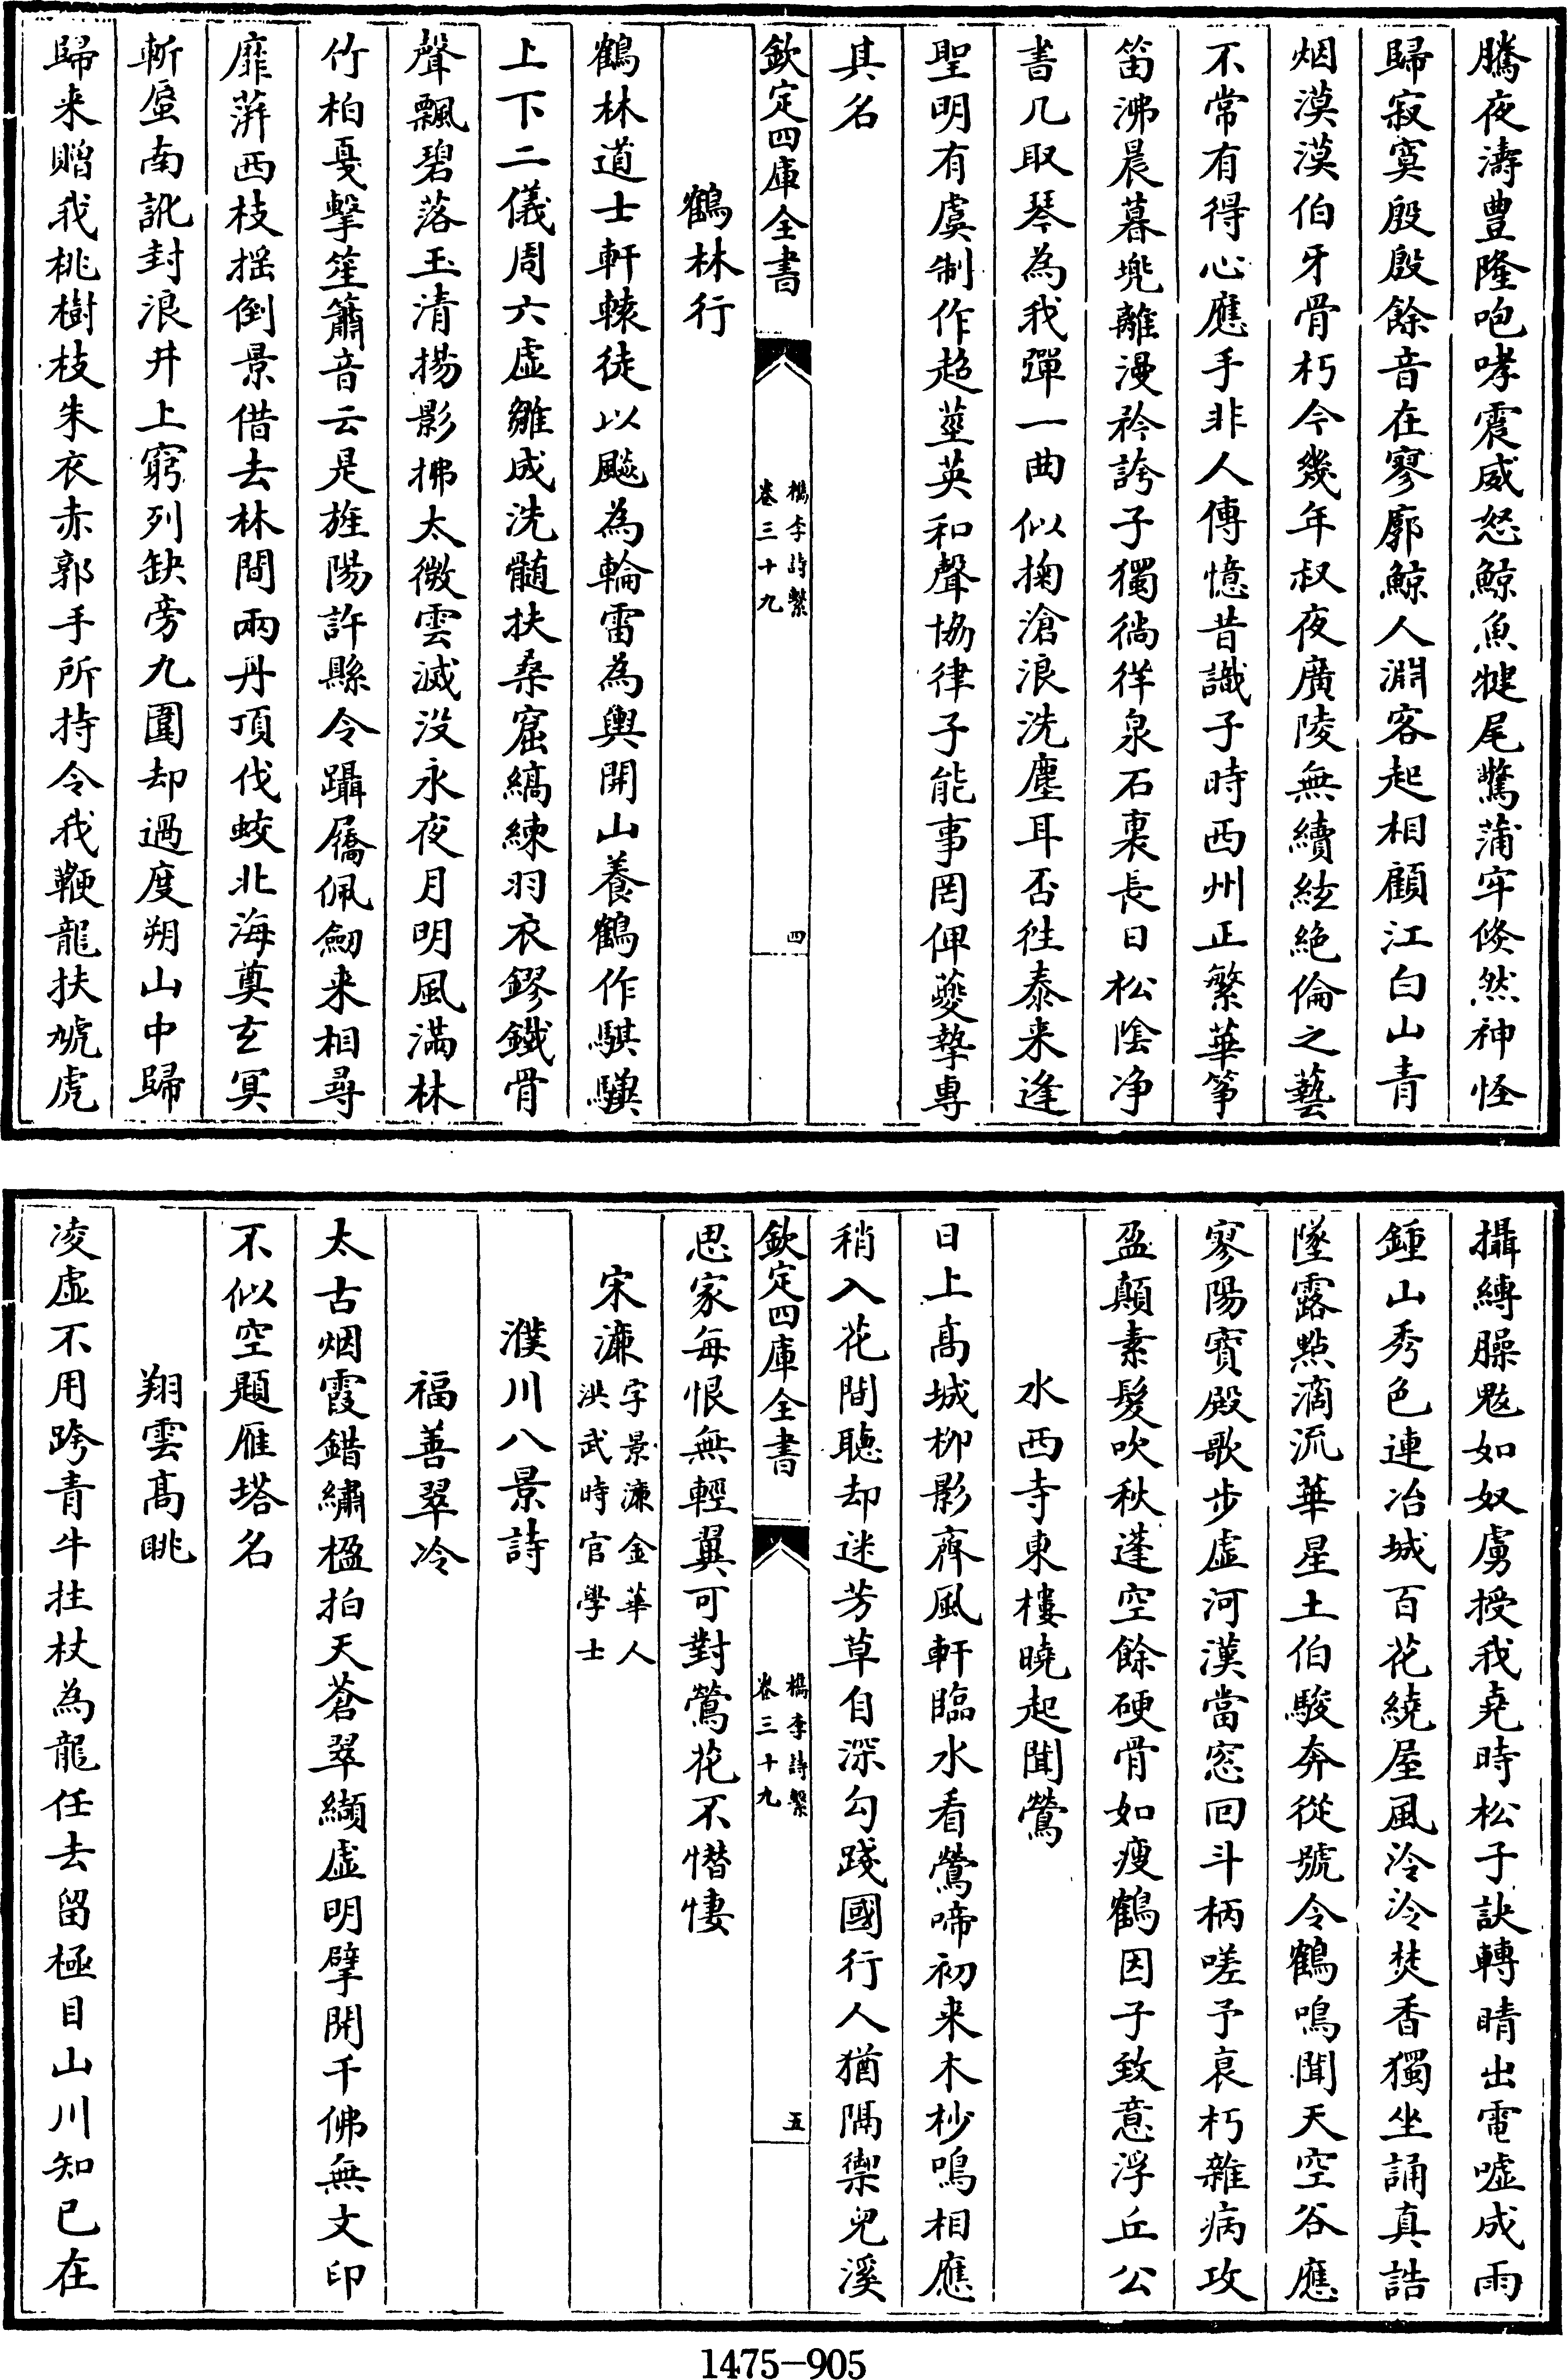 騰夜濤豊隆咆哮震威怒鯨魚犍尾驚蒲牢倐然神怪
歸寂寞殷殷餘音在寥廓鯨人淵客起相顧江白山青
烟漠漠伯牙骨朽今幾年叔夜廣陵無續絃絶倫之藝
不常有得心應手非人傳憶昔識子時西州正繁華筝
笛沸晨暮兠離漫矜誇子獨徜徉泉石裏長日松隂净
書几取琴為我彈一曲似掬滄浪洗塵耳否徃泰来逢
聖明有虞制作超莖英和聲協律子能事罔俾夔摯專
其名
欽定四庫全書
檇李詩繫
卷三十九
四
鶴林行
鶴林道士軒轅徒以飈為輪雷為輿開山養鶴作騏驥
上下二儀周六虚雛成洗髓扶桑窟縞練羽衣鏐鐵骨
聲飄碧落玉清揚影拂太微雲滅没永夜月明風滿林
竹柏戞擊笙簫音云是旌陽許縣令躡屩佩劒来相尋
靡蓱西枝揺倒景借去林間兩丹頂伐蛟北海奠玄冥
斬蜃南訛封浪井上窮列缺旁九圍却過度朔山中歸
歸来贈我桃樹枝朱衣赤郭手所持令我鞭龍扶虓虎
攝縛臊鬽如奴虜授我尭時松子訣轉睛出電嘘成雨
鍾山秀色連冶城百花繞屋風泠泠焚香獨坐誦真誥
墜露㸃滴流華星土伯駿奔從號令鶴鳴聞天空谷應
寥陽寳殿歌步虚河漢當窓回斗柄嗟予哀朽雜病攻
盈顛素髮吹秋蓬空餘硬骨如瘦鶴因子致意浮丘公
水西寺東樓曉起聞鶯
日上髙城柳影齊風軒臨水看鶯啼初来木杪鳴相應
稍入花間聽却迷芳草自深勾踐國行人猶隔禦兒溪
欽定四庫全書
檇李詩繫
卷三十九
五
思家每恨無輕翼可對鶯花不憯悽
宋濂字景濂金華人
洪武時官學士
濮川八景詩
福善翠冷
太古烟霞錯繡楹拍天蒼翠纈虚明擘開千佛無文印
不似空題雁塔名
翔雲髙眺
凌虚不用跨青牛拄杖為龍任去留極目山川知已在
1475—905